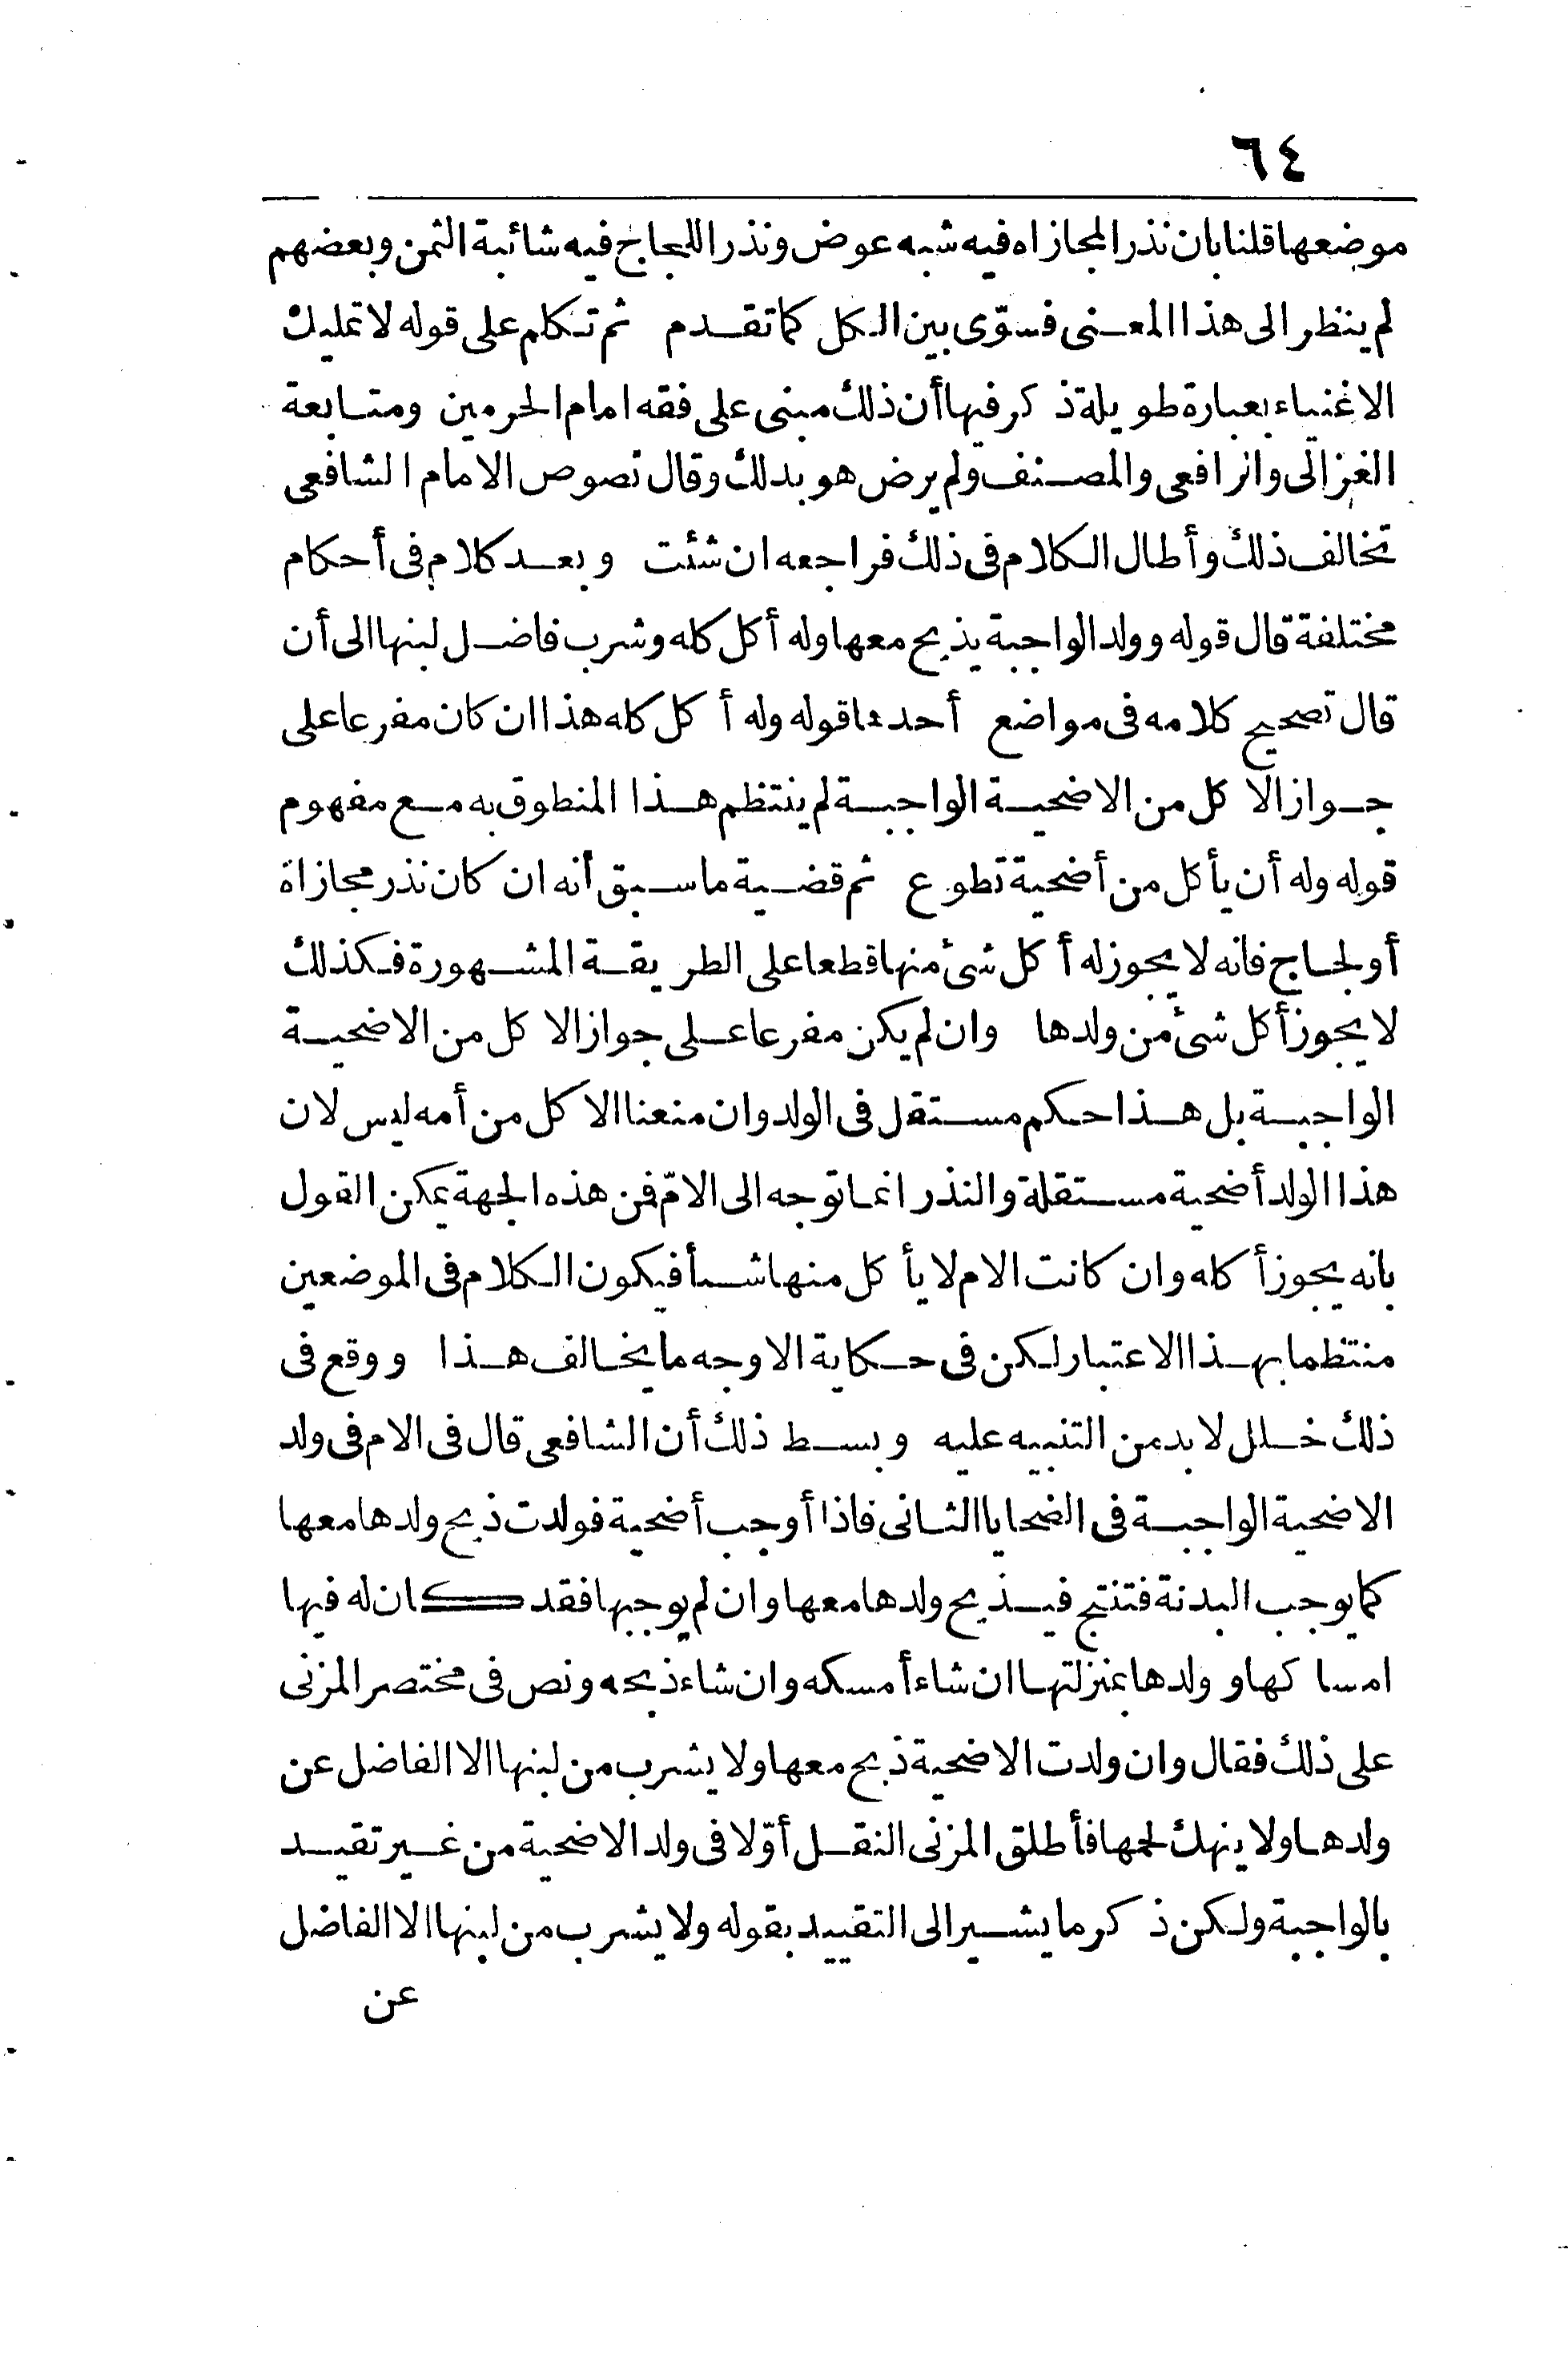 ٦٤
موضعها قلنا بان نذر المجازاه فيه شبه عوض ونذر اللجاج فيه شائبة الثمن وبعضهم
لم ينظر الى هذا المعنى فسوّى بين الكل كما تقدم ثم تكلم على قوله لا تمليك
الاغنياء بعبارة طويلة ذكر فيها أن ذلك مبنى على فقه امام الحرمين ومتابعة
الغزالى والرافعى والمصنف ولم يرض هو بذلك وقال نصوص الامام الشافعى
تخالف ذلك وأطال الكلام فى ذلك فراجعه ان شئت وبعد كلام فى أحكام
مختلفة قال قوله وولد الواجبة يذبح معها وله أكل كله وشرب فاضل لبنها الى أن
قال تصحيح كلامه فى مواضع أحدها قوله وله أكل كله هذا ان كان مفرعا على
جواز الاكل من الاضحية الواجبة لم ينتظم هذا المنطوق به مع مفهوم
قوله وله أن يأكل من أضحية تطوع ثم قضية ما سبق أنه ان كان نذر مجازاة
أو لجاج فانه لا يجوز له أكل شئ منها قطعا على الطريقة المشهورة فكذلك
لا يجوز أكل شئ من ولدها وان لم يكن مفرعا على جواز الاكل من الاضحية
الواجبة بل هذا حكم مستقل فى الولد وان منعنا الاكل من أمه ليس لان
هذا الولد أضحية مستقلة والنذر انما توجه الى الامّ فمن هذه الجهة يمكن القول
بانه يجوز أكله وان كانت الام لا يأكل منها شيأ فيكون الكلام فى الموضعين
منتظما بهذا الاعتبار لكن فى حكاية الاوجه ما يخالف هذا ووقع فى
ذلك خلل لا بد من التنبيه عليه وبسط ذلك أن الشافعى قال فى الام فى ولد
الاضحية الواجبة فى الضحايا الثانى فاذا أوجب أضحية فولدت ذبح ولدها معها
كما يوجب البدنة فتنتج فيذبح ولدها معها وان لم يوجبها فقد كان له فيها
امساكها وولدها بمنزلتها ان شاء أمسكه وان شاء ذبحه ونص فى مختصر المزنى
على ذلك فقال وان ولدت الاضحية ذبح معها ولا يشرب من لبنها الا الفاضل عن
ولدها ولا ينهك لحمها فأطلق المزنى النقل أوّلا فى ولد الاضحية من غير تقييد
بالواجبة ولكن ذكر ما يشير الى التقييد بقوله ولا يشرب من لبنها الا الفاضل
عن